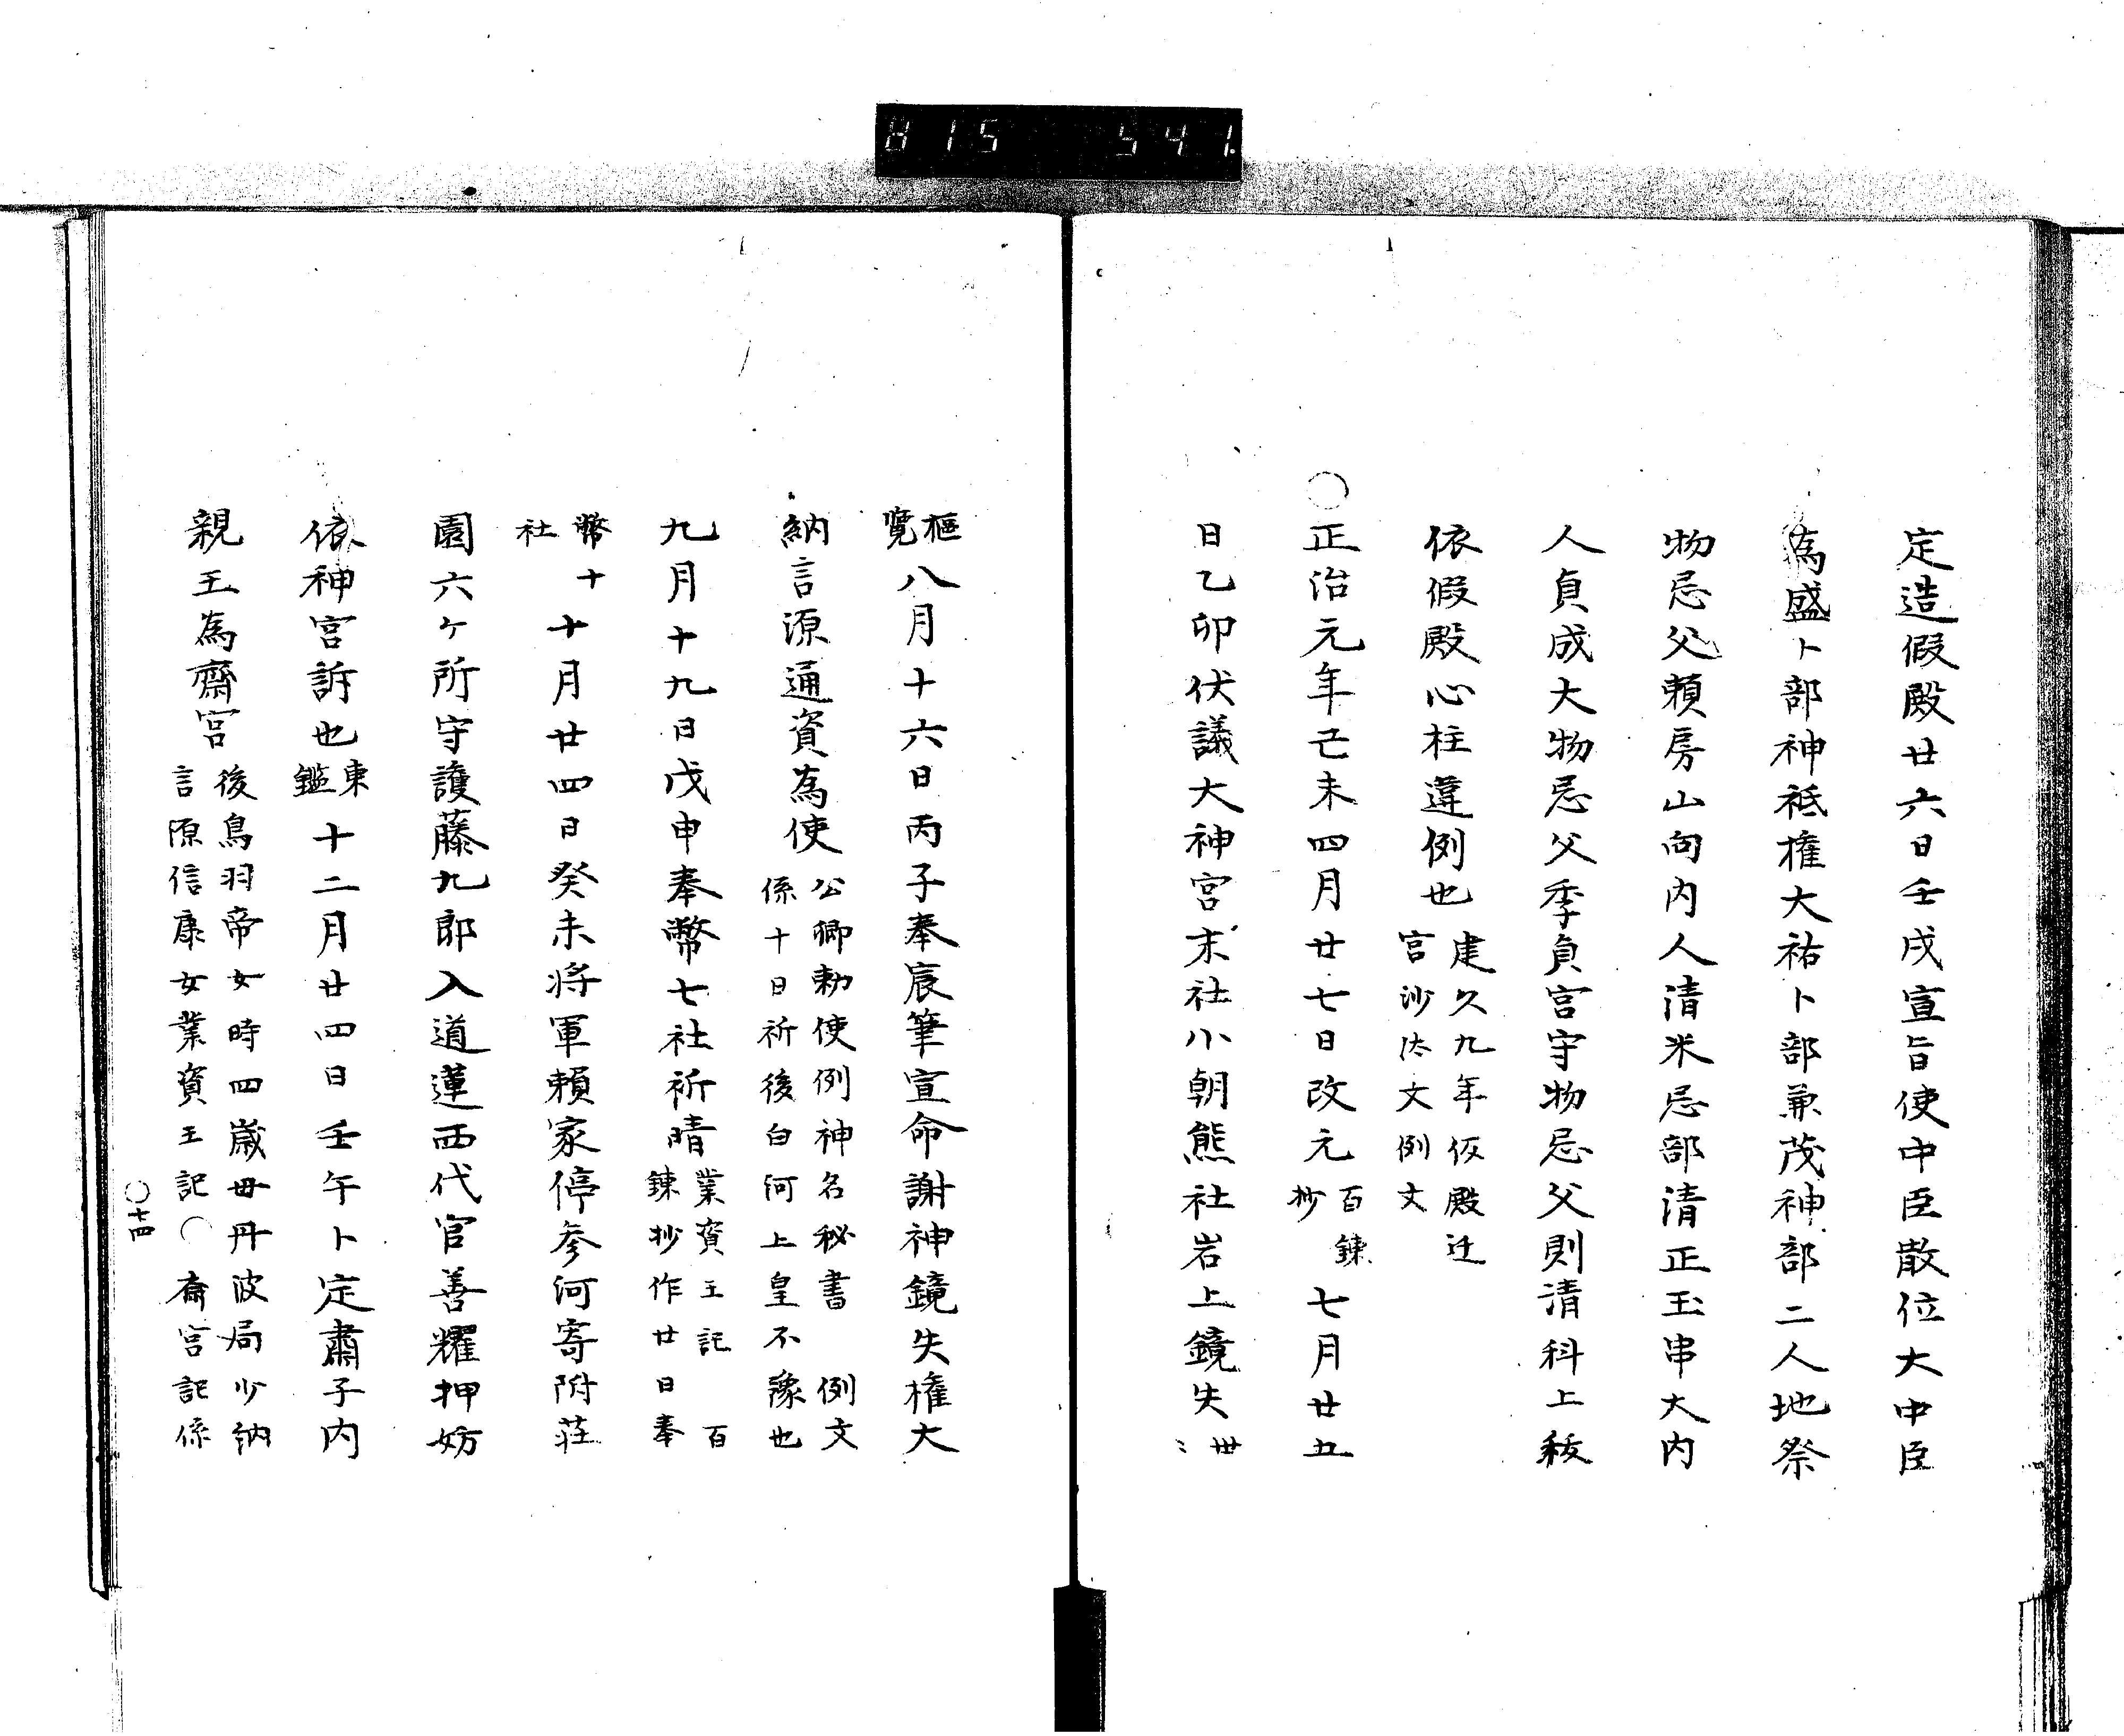 815 541
定造假殿廿六日壬戌宣旨使中臣散位大中臣
為盛卜部神祗権大祐卜部兼茂神部二人地祭
物忌父頼房山向内人清米忌部清正玉串大内
人貞成大物忌父季貞宮守物忌父則清科上秡
依假殿心柱違例也
建久九年仮殿迁
宮沙汰文例文
○正治元年己未四月廿七日改元
百錬
抄
七月廿五
日乙卯伏議大神宮末社小朝熊社岩上鏡失
丗
〻
樞
覽
八月十六日丙子奉宸筆宣命謝神鏡失権大
納言源通資為使
公卿勅使例神名秘書 例文
係十日祈後白河上皇不豫也
九月十九日戊申奉幣七社祈晴
業資王記 百
錬抄作廿日奉
幣十
社
十月廿四日癸未将軍頼家停参河寄附荘
園六ヶ所守護藤九郎入道蓮西代官善耀押妨
依神宮訴也
東
鑑
十二月廿四日壬午卜定肅子内
親王為齋宮
後鳥羽帝女時四歳毋丹波局少納
言源信康女業資王記○斎宮記係
○十四